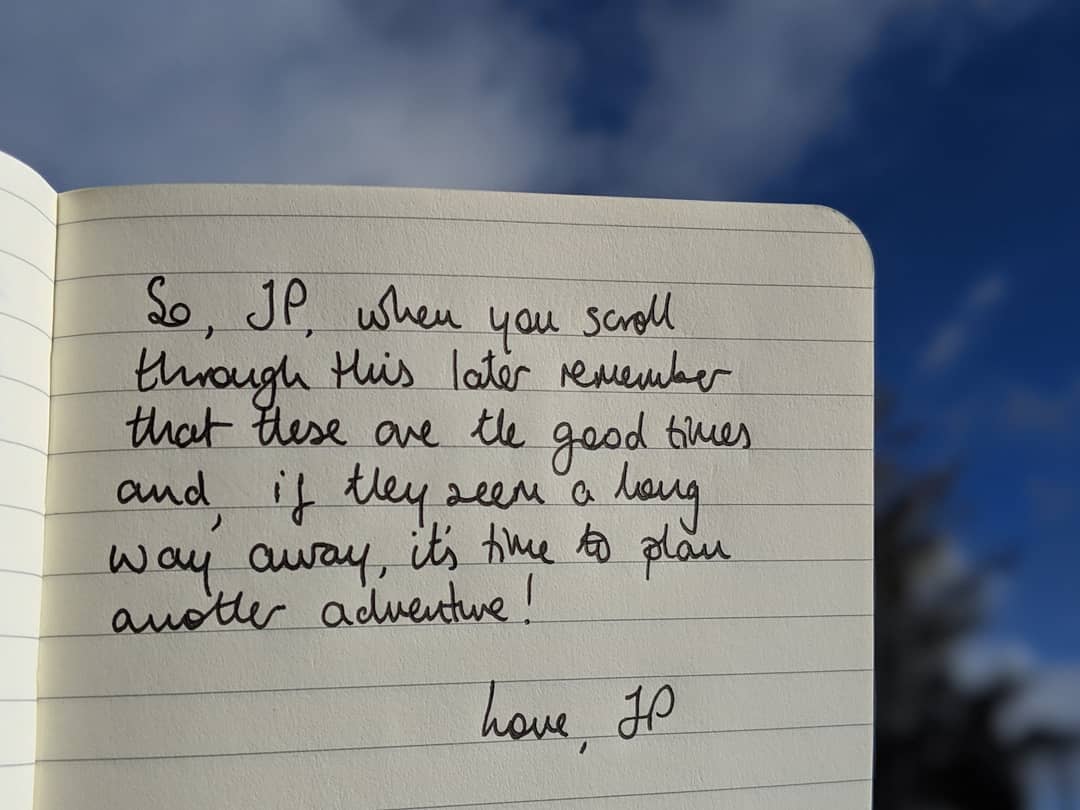 So, JP, when you scroll
through this later remember
that these are the good times
and, if they seem a long
way away, it's time to plan
another adventure!
Love, JP